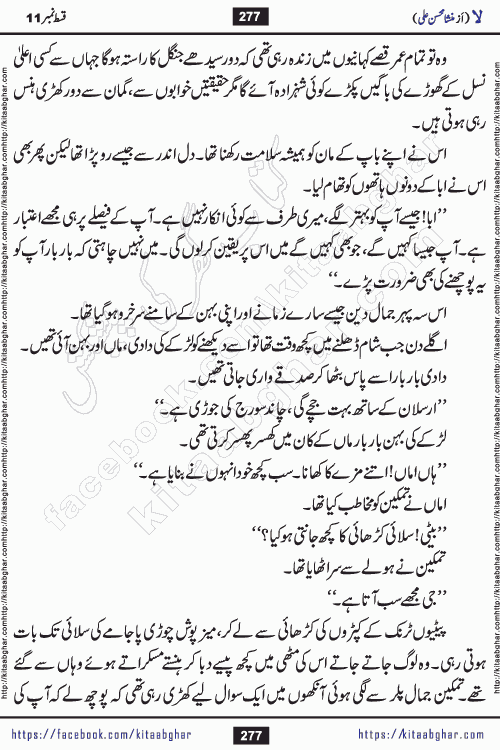 لا (از منشا محسن علی) 277 قسط نمبر 11
وہ تو تمام عمر قصے کہانیوں میں زندہ رہی تھی کہ دور سیدھے جنگل کا راستہ ہوگا جہاں سے کسی اعلیٰ
نسل کے گھوڑے کی باگیں پکڑے کوئی شہزادہ آئے گا مگر حقیقتیں خوابوں سے، گمان سے دور کھڑی ہنس
رہی ہوتی ہیں۔
اس نے اپنے باپ کے مان کو ہمیشہ سلامت رکھنا تھا۔ دل اندر سے جیسے رو پڑا تھا لیکن پھر بھی
اس نے ابا کے دونوں ہاتھوں کو تھام لیا۔
’’ابا! جیسے آپ کو بہتر لگے، میری طرف سے کوئی انکار نہیں ہے۔ آپ کے فیصلے پر ہی مجھے اعتبار
ہے۔ آپ جیسا کہیں گے، جو بھی کہیں گے میں اس پر یقین کرلوں گی۔ میں نہیں چاہتی کہ بار بار آپ کو
یہ پوچھنے کی بھی ضرورت پڑے۔‘‘
اس سہ پہر جمال دین جیسے سارے زمانے اور اپنی بہن کے سامنے سرخرو ہو گیا تھا۔
اگلے دن جب شام ڈھلنے میں کچھ وقت تھا تو اسے دیکھنے کو لڑکے کی دادی، ماں اور بہن آئی تھیں۔
دادی بار بار اسے پاس بٹھا کر صدقے واری جاتی تھیں۔
’’ارسلان کے ساتھ بہت جچے گی، چاند سورج کی جوڑی ہے۔‘‘
لڑکے کی بہن بار بار ماں کے کان میں کھسر پھسر کرتی تھی۔
’’ہاں اماں! اتنے مزے کا کھانا۔ سب کچھ خود انہوں نے بنایا ہے۔‘‘
اماں نے تمکین کو مخاطب کیا تھا۔
’’بیٹی! سلائی کڑھائی کا کچھ جانتی ہو کیا؟‘‘
تمکین نے ہولے سے سر اٹھایا تھا۔
’’جی مجھے سب آتا ہے۔‘‘
پیٹیوں ٹرنک کے کپڑوں کی کڑھائی سے لے کر، میز پوش چوڑی پاجامے کی سلائی تک بات
ہوتی رہی۔ وہ لوگ جاتے جاتے اس کی مٹھی میں کچھ پیسے دبا کر ہنستے مسکراتے ہوئے وہاں سے گئے
تھے۔ تمکین جمال پلر سے لگی ہوئی آنکھوں میں ایک سوال لیے کھڑی رہی تھی کہ پوچھ لے کہ آپ کی
https://facebook.com/kitaabghar 277 https://kitaabghar.com